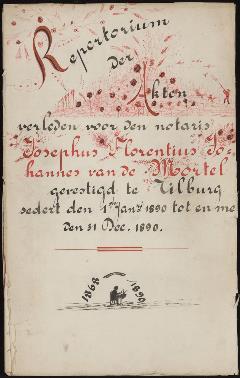 Repertorium
der
Akten
verleden voor den notaris
Josephus Florentius Jo-
hannes van de Mortel
gevestigd te Tilburg
sedert den 1sten Janri 1890 tot en me
den 31 Dec. 1890.
1868 1890